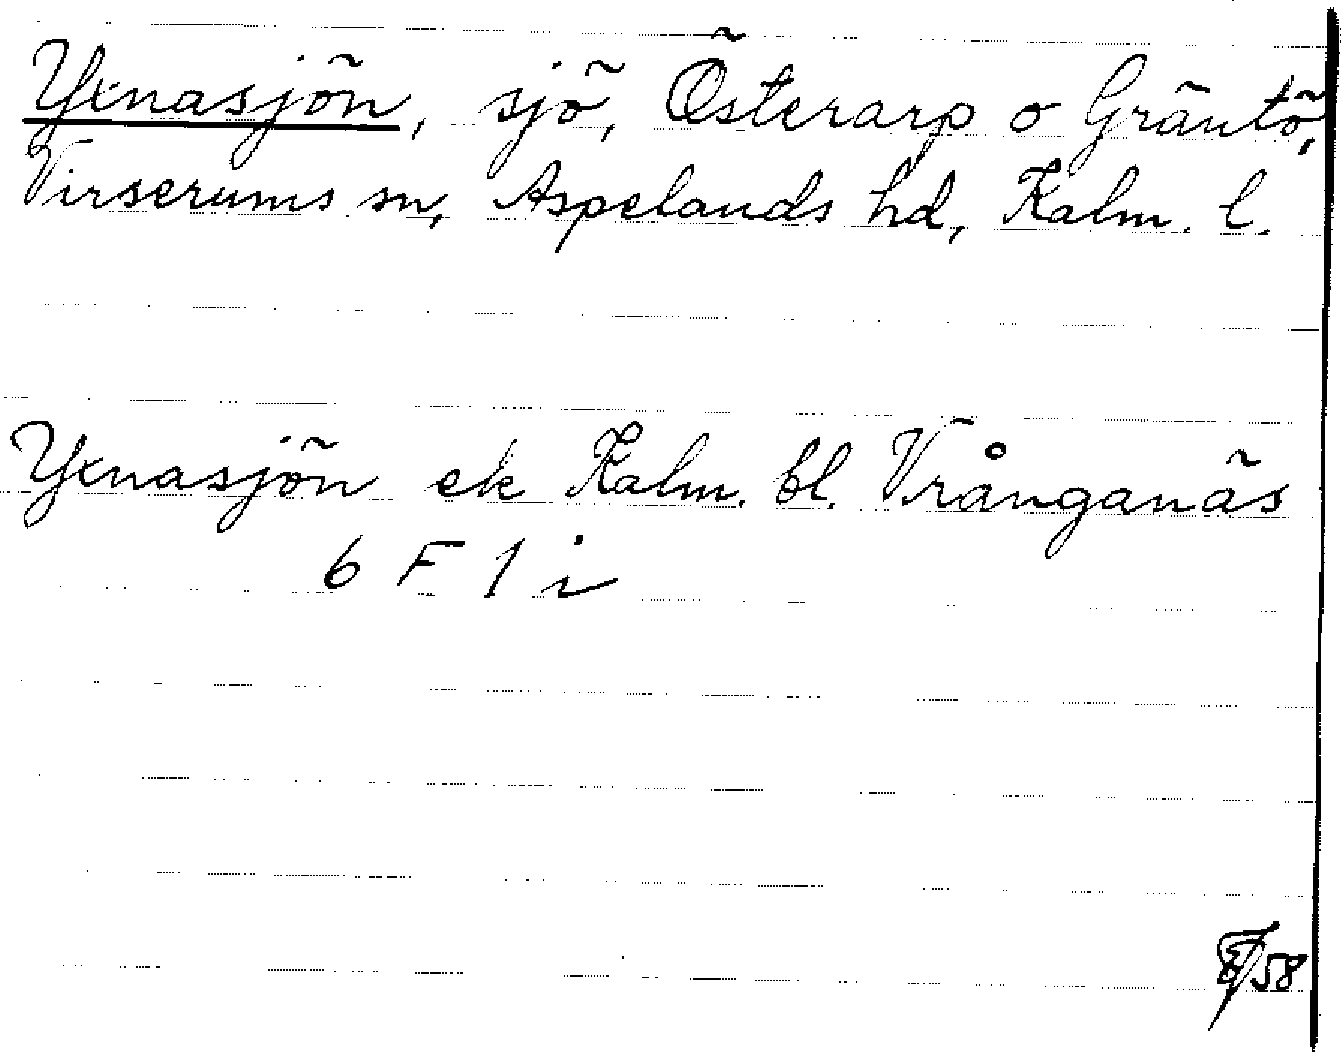 Yxnasjön, sjö, Österarp o Gräntö,
Virserums sn, Aspelands hd, Kalm. l.
Yxnasjön ek Kalm. bl. Vrånganäs
6 F 1 i
58